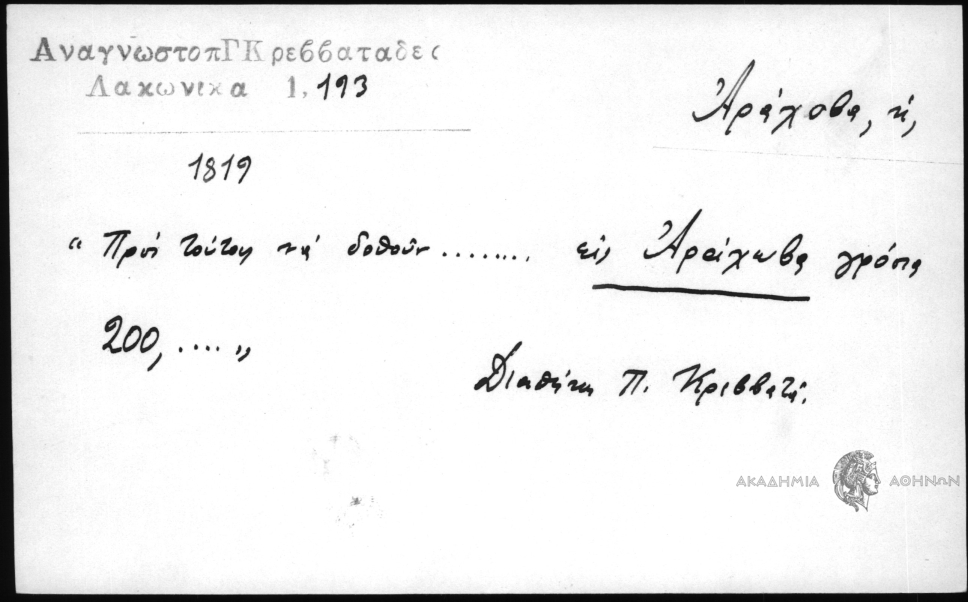 ΑναγνωστοπΓΚρεββαταδες
Λακωνικα 1,193
Ἀράχοβα, ἡ,
1819
“ Πρὸς τούτοις νὰ δοθοῦν ........ εἰς Ἀράχωβα γρόσια
200, .... „
Διαθήκη Π. Κρεββατᾶ.
ΑΚΑΔΗΜΙΑ ΑΘΗΝΩΝ